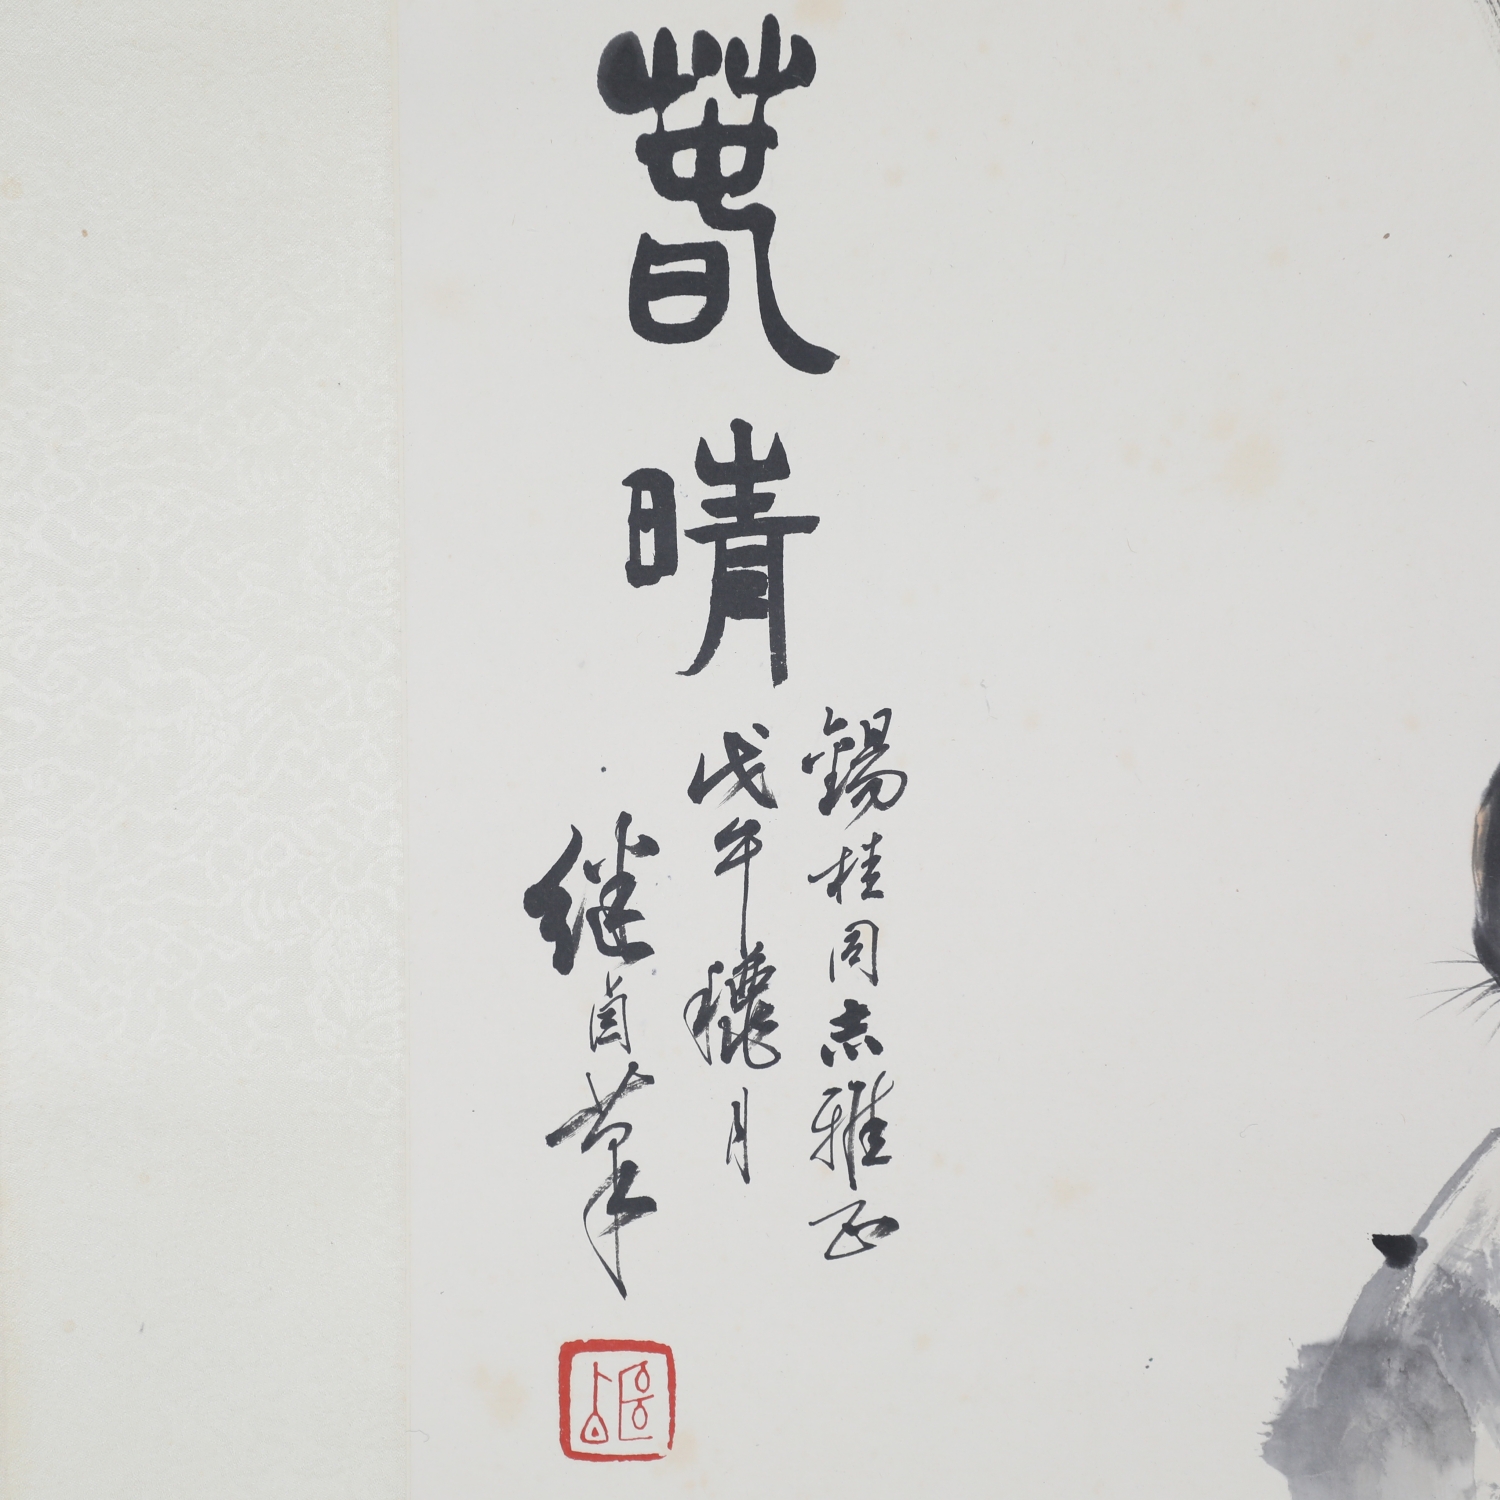 萅晴
錫桂同志雅正
戊午穠月
继卣笔